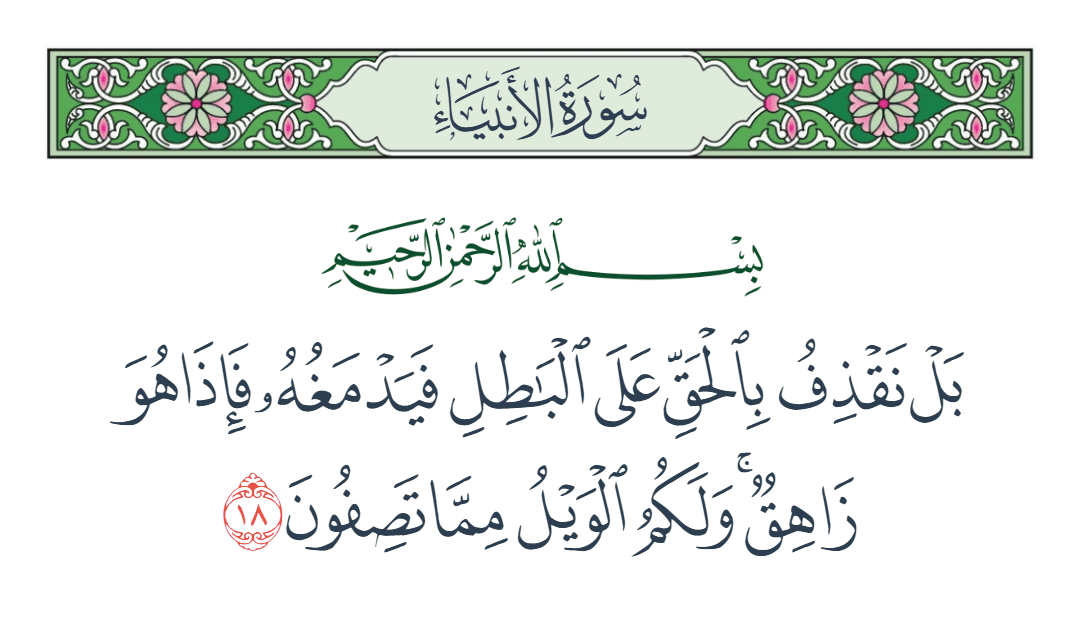 سُورَةُ الأَنبِيَاءِ
بِسْمِ ٱللَّهِ ٱلرَّحْمَٰنِ ٱلرَّحِيمِ
بَلْ نَقْذِفُ بِٱلْحَقِّ عَلَى ٱلْبَٰطِلِ فَيَدْمَغُهُۥ فَإِذَا هُوَ
زَاهِقٌۭ ۚ وَلَكُمُ ٱلْوَيْلُ مِمَّا تَصِفُونَ ١٨